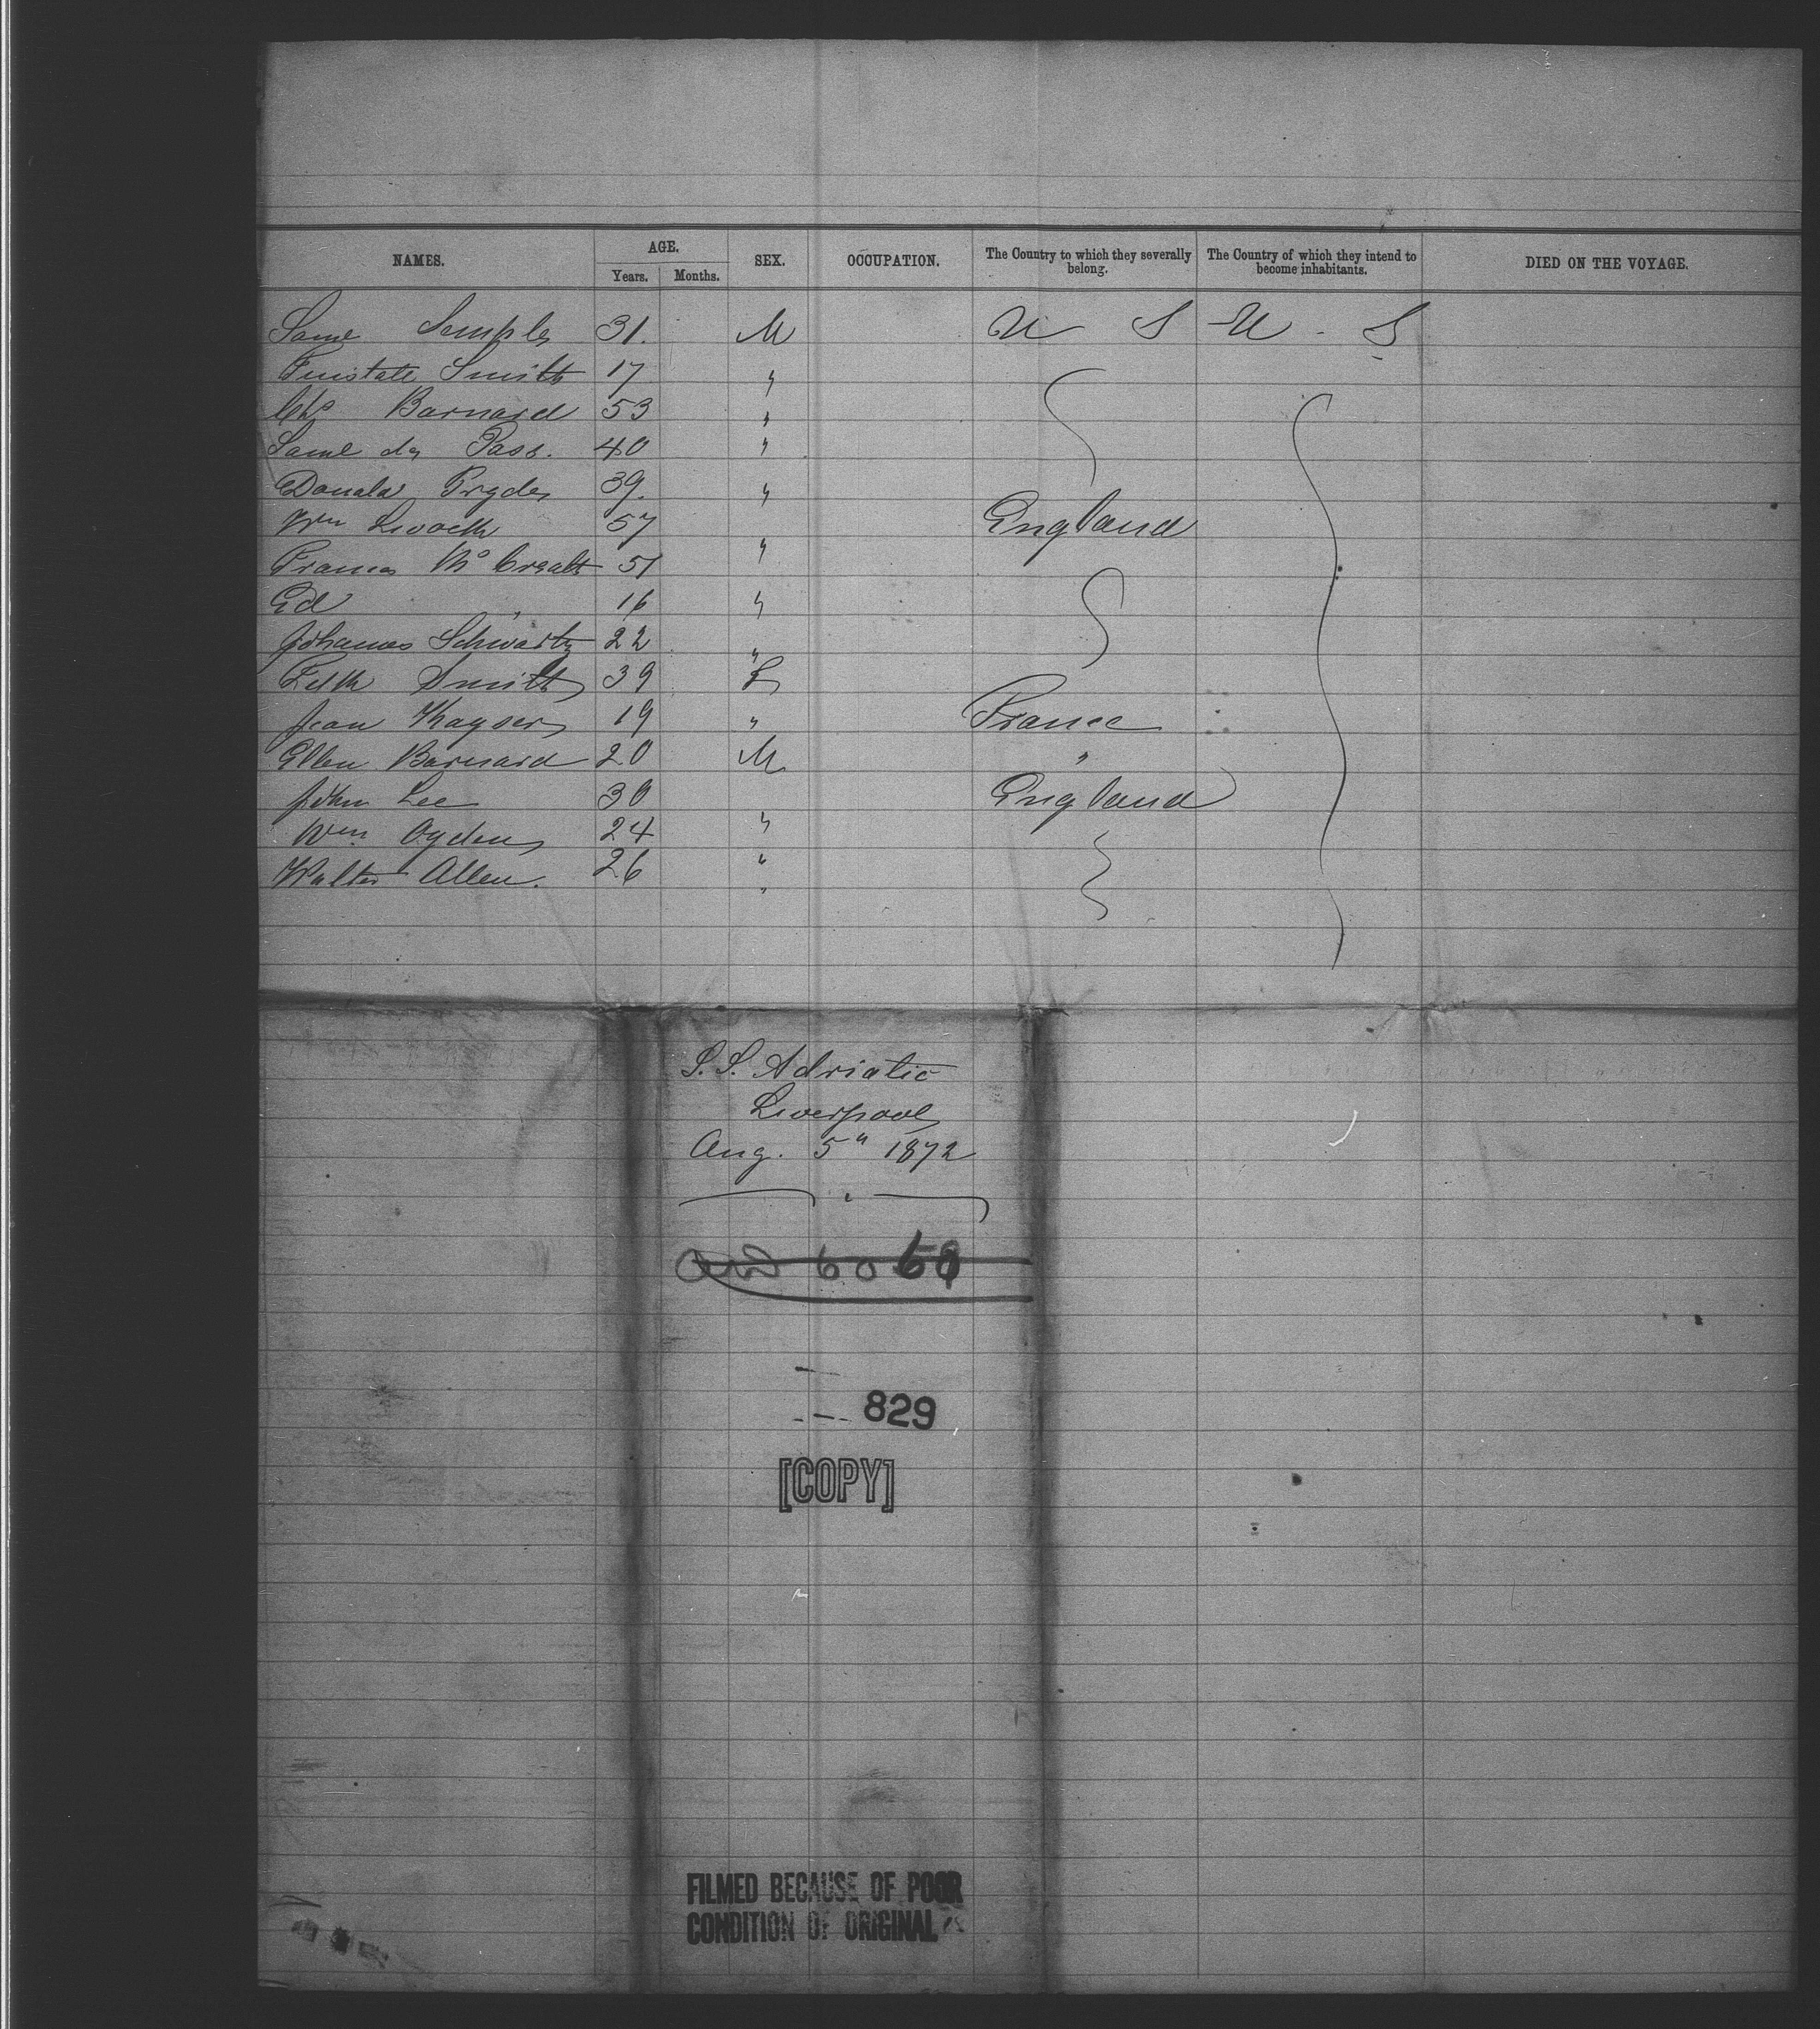 NAMES. AGE. Years. Months. SEX. OCCUPATION. The Country to which they severally belong. The Country of which they intend to become inhabitants. DIED ON THE VOYAGE.
Saml Semple 31. M U S U. S
Smith 17 "
Chs Barnard 53 "
Saml de Pass. 40 "
Donald Pryde 39. "
Wm 57 England
Frances Mc 51 "
Ed " 16 "
Johannes Schwartz 22 "
Smith 39 F
Jean Kayser 19 " France
Ellen Barnard 20 M "
John Lee 30 England
Wm Ogden 24 "
Walter Allen. 26 "
"
S.S. Adriatic
Liverpool
Aug. 5" 1872
829
[COPY]
FILMED BECAUSE OF POOR
CONDITION OF ORIGINAL